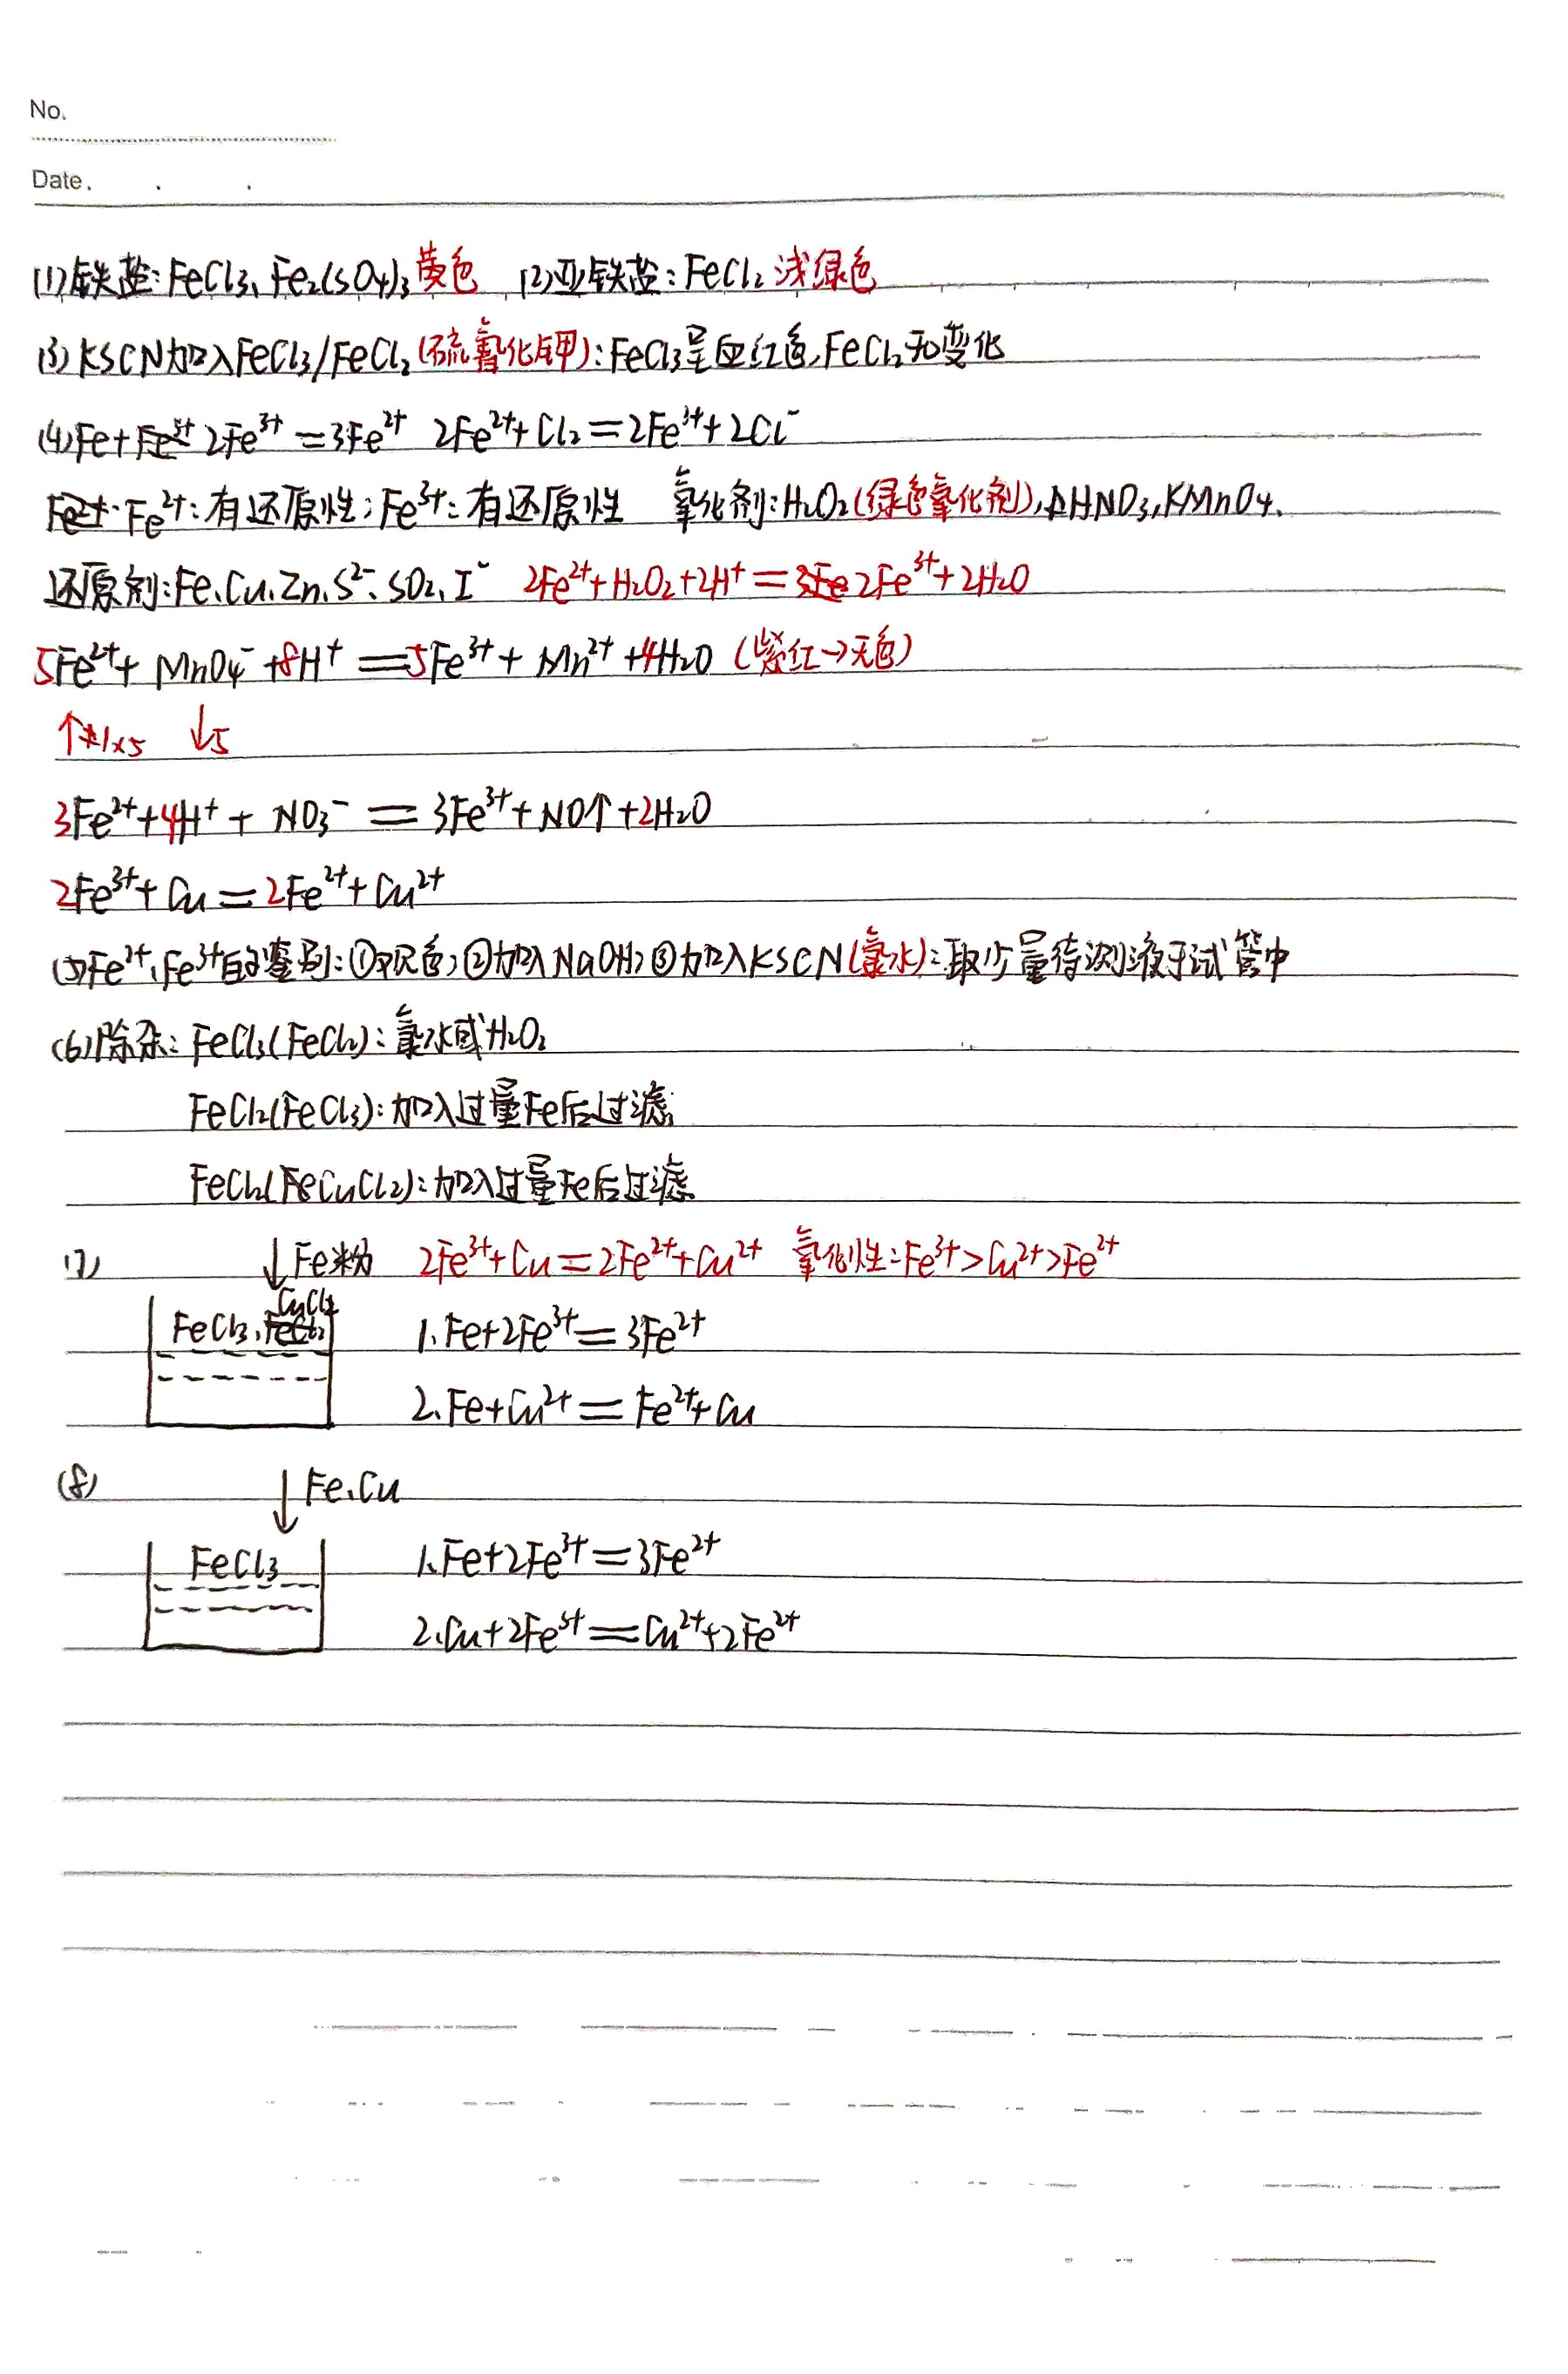 No.
Date.
(1)铁盐:FeCl₃、Fe₂(SO₄)₃黄色 (2)亚铁盐:FeCl₂浅绿色
(3)KSCN加入FeCl₃/FeCl₂(硫氰化钾):FeCl₃呈血红色,FeCl₂无变化
(4)Fe+2Fe³⁺=3Fe²⁺ 2Fe²⁺+Cl₂=2Fe³⁺+2Cl⁻
Fe²⁺:有还原性;Fe³⁺:有还原性 氧化剂:H₂O₂(绿色氧化剂),HNO₃,KMnO₄.
还原剂:Fe、Cu、Zn、S²⁻、SO₂、I⁻ 2Fe²⁺+H₂O₂+2H⁺=2Fe³⁺+2H₂O
5Fe²⁺+MnO₄⁻+8H⁺=5Fe³⁺+Mn²⁺+4H₂O(紫红→无色)
↑1×5 ↓5
3Fe²⁺+4H⁺+NO₃⁻=3Fe³⁺+NO↑+2H₂O
2Fe³⁺+Cu=2Fe²⁺+Cu²⁺
(5)Fe²⁺、Fe³⁺的鉴别:①观色;②加入NaOH;③加入KSCN(氯水):取少量待测液于试管中
(6)除杂:FeCl₃(FeCl₂):氯水或H₂O₂
FeCl₂(FeCl₃):加入过量Fe后过滤
FeCl₂(CuCl₂):加入过量Fe后过滤
(7) ↓Fe粉 2Fe³⁺+Cu=2Fe²⁺+Cu²⁺ 氧化性:Fe³⁺>Cu²⁺>Fe²⁺
FeCl₃、CuCl₂ 1、Fe+2Fe³⁺=3Fe²⁺
2、Fe+Cu²⁺=Fe²⁺+Cu
(8) ↓Fe、Cu
FeCl₃ 1、Fe+2Fe³⁺=3Fe²⁺
2、Cu+2Fe³⁺=Cu²⁺+2Fe²⁺